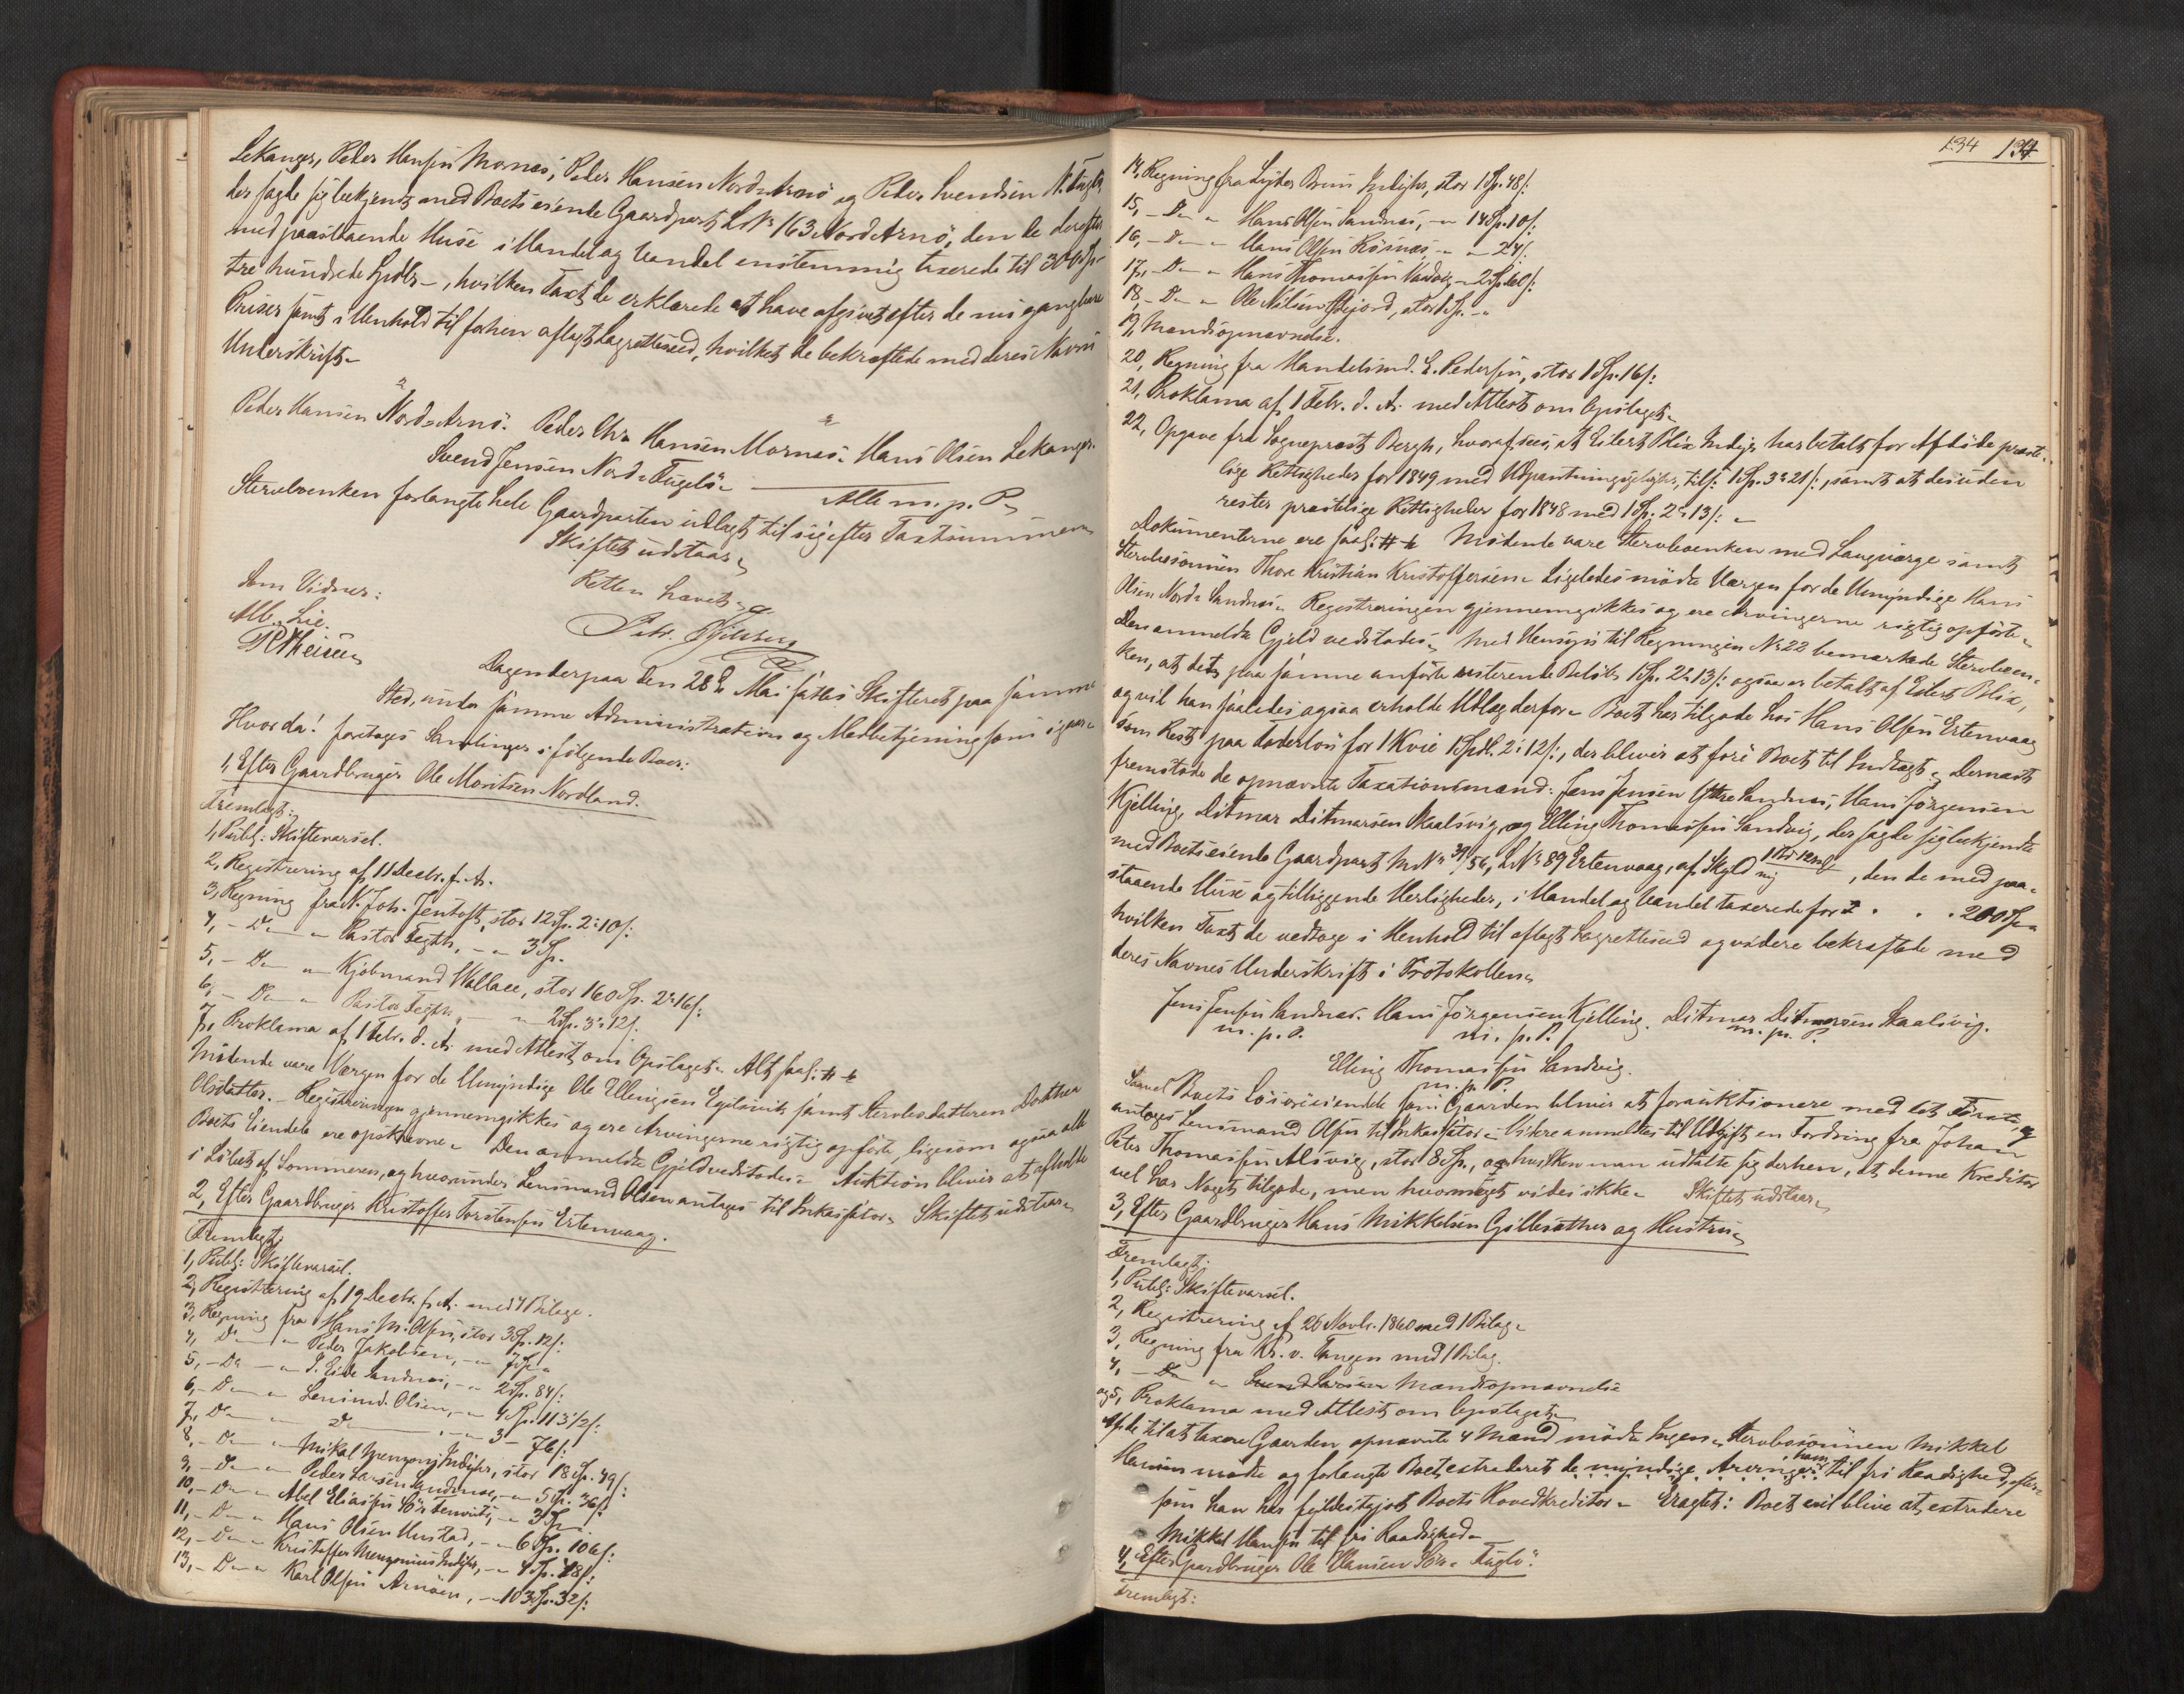 Lekanger, Peder Hansen Mornæs, Peder Hansen Nord-Arnö og Peder Svendsen N. Fugelö
der sagde sig bekjendt med Boets eiende Gaardpart L. N: 163 Nord-Arnö, den de derefter
med paastaaende Huse i Handel og Vandel enstemmig taxerede til 300 Sp -
tre hundrede Spdlr -, hvilken Taxt de erklærede at have afgivet efter de nu gangbare
Priser samt i Henhold til forhen aflagt Lagretteseed, hvilket de bekræftede med deres Navns
Underskrift.
Peder Hansen Nord-Arnö. Peder Chr. Hansen Mornæs. Hans Olsen Lekanger.
Svend Jensen Nord-Fugelö. Alle m. p. P.
Stervboenken forlangte hele Gaardparten udlagt til sig efter Taxtsummen
Skiftet udstaar.
Retten hævet.
Som Vidner:
Alb. Lie.
Dagen derpaa den 28de Mai sattes Skifteret paa samme
Sted, under samme Administration og Medbetjening som igaar.
Hvor da! foretoges Samlinger i følgende Boer:
1, Efter Gaardbruger Ole Moritsen Nordland.
Fremlagt:
1, Publ: Skiftevarsel.
2, Registrering af 11 Decbr. f. A.
3, Regning fra N. Joh. Jentoft, stor 12 Sp. 2: 10 s:
4, - Do - " Pastor Tegth, - " 3 Sp.
5, - Do - " Kjöbmand Wallace, stor 160 Sp. 2: 16 s:
6, - Do - " Pastor Tegth, - " 2 Sp. 3: 12 s.
7, Proklama af 1 Febr. d. A. med Attest om Opslaget. Alt saal: # t
Mödende vare Værgen for de Umyndige Ole Ellingsen Egilsvik samt Stervbodatteren Dorthea
Olsdatter. - Registreringen gjennemgikkes og ere Arvingerne rigtig opförte ligesom ogsaa alle
Boets Eiendele ere opskrevne. Den anmeldte Gjeld vedstodes. Auktion bliver at afholde
i Löbet af Sommeren, og hvorunder Lensmand Olsen antages til Inkassator. Skiftet udstaar.
2, Efter Gaardbruger Kristoffer Torstensen Ertenvaag.
Fremlagt:
1, Publ: Skiftevarsel.
2, Registrering af 19 Decbr. f. A. med 4 Bilage.
3, Regning fra Hans M. Olsen, stor 3 Sp. 12 s:
4, Do " Peder Jakobsen, - " 7 Sp "
5, - Do - " P. Eide Sandnæs, - " 2 Sp. 84 s:
6, - Do - " Lensmd. Olsen, - " 4 Sp. 113 1/2 s:
7, Do - " Do - " 3 - 76 s:
8, - Do " Mikal Indyhr, stor 18 Sp. 49 s:
9, - Do - " Peder Larsen Sandnæs, - " 5 Sp. 36 s:
10, - Do - " Abel Eliassen, - " 3 Sp.
11, - Do - " Hans Olsen Hustad, - " 6 Sp. 106 s:
12, - Do - " Kristoffer Indyhr, - " 4 Sp. 48 s:
13, - Do - " Karl Olsen Arnöen, - " 103 Sp. 32 s:
134 134
14, Regning fra Lyder Bruns Indyhr, stor 1 Sp. 48 s:
15, - Do " Hans Olsen Sandnæs, - " 14 Sp. 10 s:
16, - Do - " Hans Olsen Rösnæs, - " - 24 s:
17, - Do - " Hans Thomassen - 2 Sp. 60 s:
18, - Do - " Ole Nilsen, stor 1 Sp. - "
19, Mandsopnævnelse.
20, Regning fra Handelsmd. E. Pedersen, stor 1 Sp. 16 s:
21, Proklama af 1 Febr. d. A. med Attest om Opslaget.
22, Opgave fra Sogneprest Bergh, hvoraf sees, at Eilert Blix Indyr har betalt for Afdöde præste-
lige Rettigheder for 1849 med Udpantningsgebyhr, tils: 1 Sp. 3: 21 s:, samt at desuden
rester præstelige Rettigheder for 1848 med 1 Sp. 2: 13 s: -
Dokumenterne ere saal: # t Mödende vare Stervboenken med Laugværge samt
Stervbosönnen Thore Kristian Kristoffersen. Ligeledes mödte Værgen for de Umyndige Hans
Olsen Nord-Sandnæs. Registreringen gjennemgikkes og ere Arvingerne rigtig opförte.
Den anmeldte Gjeld vedstodes. Med Hensyn til Regningen N: 22 bemærkede Stervboen-
ken, at det paa samme anförte resterende Belöb 1 Sp. 2: 13 s: ogsaa er betalt af Eilert Blix,
og vil han saaledes ogsaa erholde Udlæg derfor. Boet har tilgode hos Hans Olsen Ertenvaag
som Rest paa Foderlön for 1 Kvie 1 Spdl. 2: 12 s:, der bliver at före Boet til Indtægt. Dernæst
fremstode de opnævnte Taxationsmænd: Jens Jensen Sandnæs, Hans Jörgensen
Kjelling, Ditmar Ditmarsen Skaalsvig, og Elling Thomassen Sandvig, der sagde sig bekjendte
med Boets eiende Gaardpart M. N: 31/56, L. N: 89 Ertenvaag, af Skyld ny, den de med paa-
staaende Huse og tilliggende Herligheder, i Handel og Vandel taxerede for . . . 200 Sp.
hvilken Taxt de vedtoge i Henhold til aflagt Lagretteseed og videre bekræftede med
deres Navnes Underskrift i Protokollen.
Jens Jensen Sandnæs. Hans Jörgensen Kjelling. Ditmar Ditmarsen Skaalsvig.
m. p. P. m. p. P. m. p. P.
Elling Thomassen Sandvig.
m. p. P.
Saavel Boets Lösöreiendele som Gaarden bliver at forauktionere med det Förste og
antages Lensmand Olsen til Inkassator. Videre anmeldtes til Udgift en Fordring fra Johan
Peter Thomassen Alsvig, stor 8 Sp., og hvilken man udtalte sig derhen, at denne Kreditor
vel har Noget tilgode, men hvormeget vides ikke. Skiftet udstaar.
3, Efter Gaardbruger Hans Mikkelsen Gillesæther og Hustru.
Fremlagt:
1, Publ: Skiftevarsel.
2, Registrering af 26 Novbr. 1860 med 1 Bilag.
3, Regning fra Kr. v. Tangen med 1 Bilag.
4, - Do " Mandsopnævnelse
og 5, Proklama med Attest om Opslaget.
Af de til at taxere Gaarden opnævnte 4 Mænd mödte Ingen. Stervbosönnen Mikkel
Hansen mödte og forlangte Boet extraderet de myndige Arvinger ham til fri Raadighed, efter-
som han har fyldestgjort Boets Hovedkreditor. Eragtet: Boet vil blive at extradere
Mikkel Hansen til fri Raadighed.
4, Efter Gaardbruger Ole Hansen Sör-Fuglö.
Fremlagt: